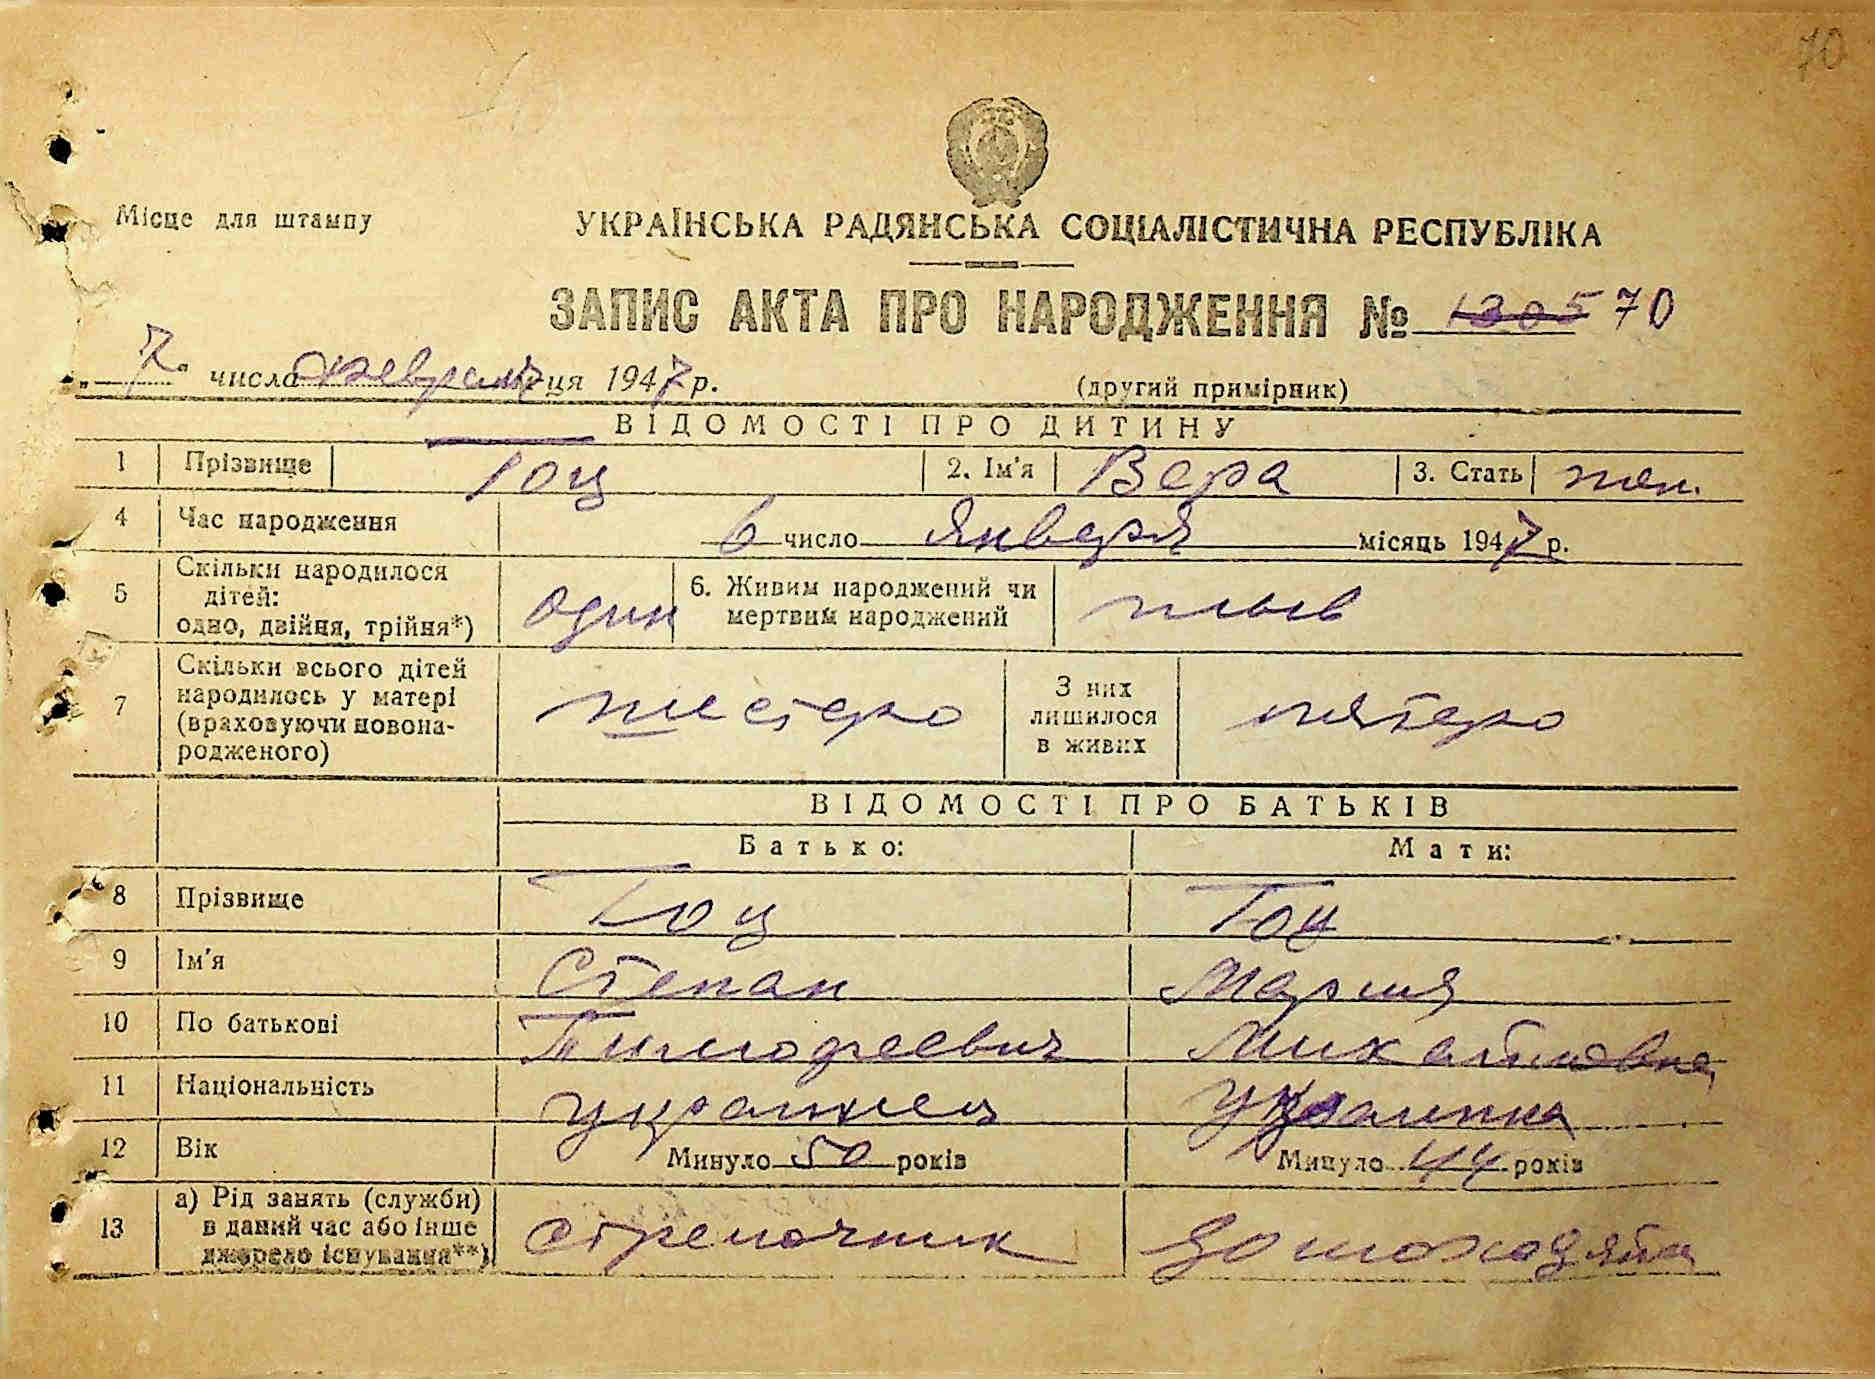 70
Місце для штампу
УКРАЇНСЬКА РАДЯНСЬКА СОЦІАЛІСТИЧНА РЕСПУБЛІКА
ЗАПИС АКТА ПРО НАРОДЖЕННЯ № 1305 70
„7" числа февраля ця 1947 р.
(другий примірник)
ВІДОМОСТІ ПРО ДИТИНУ
1 Прізвище Гоц 2. Ім'я Вера 3. Стать жен.
4 Час народження 6 число января місяць 1947 р.
5 Скільки народилося дітей: одно, двійня, трійня*) один 6. Живим народжений чи мертвим народжений
7 Скільки всього дітей народилось у матері (враховуючи новонародженого) шестеро З них лишилося в живих пятеро
ВІДОМОСТІ ПРО БАТЬКІВ
Батько: Мати:
8 Прізвище Гоц Гоц
9 Ім'я Степан Мария
10 По батькові Тимофеевич Михайловна
11 Національність украинец украинка
12 Вік Минуло 50 років Минуло 44 років
13 а) Рід занять (служби) в даний час або інше джерело існування**) стрелочник домохозяйка